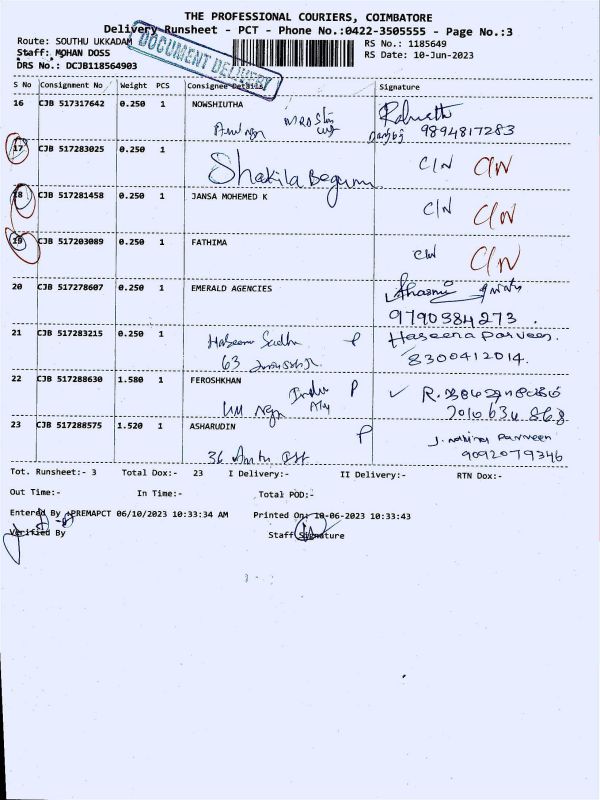 THE PROFESSIONAL COURIERS, COIMBATORE
Delivery Runsheet - PCT - Phone No.:0422-3505555 - Page No.:3
Route: SOUTHU UKKADAM
RS No.: 1185649
Staff: MOHAN DOSS
RS Date: 10-Jun-2023
DRS No.: DCJB118564903
DOCUMENT DELIVERY
S No Consignment No Weight PCS Consignee Details Signature
16 CJB 517317642 0.250 1 NOWSHIUTHA
9894817283
17 CJB 517283025 0.250 1 Shakila Begum C/N C/N
18 CJB 517281458 0.250 1 JANSA MOHEMED K C/N C/N
19 CJB 517203089 0.250 1 FATHIMA C/N C/N
20 CJB 517278607 0.250 1 EMERALD AGENCIES
9790384273.
21 CJB 517283215 0.250 1 P Haseena Parveen.
63 8300412014.
22 CJB 517288630 1.580 1 FEROSHKHAN P
23 CJB 517288575 1.520 1 ASHARUDIN P Parveen
36 9092079346
Tot. Runsheet:- 3 Total Dox:- 23 I Delivery:- II Delivery:- RTN Dox:-
Out Time:- In Time:- Total POD:-
Entered By :PREMAPCT 06/10/2023 10:33:34 AM Printed On: 10-06-2023 10:33:43
Verified By Staff Signature